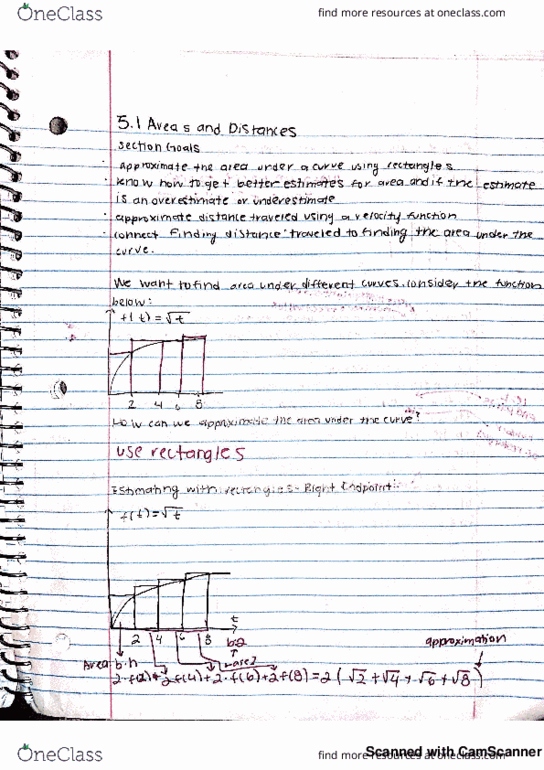 OneClass
find more resources at oneclass.com
5.1 Areas and Distances
Section Goals
· approximate the area under a curve using rectangles
· know how to get better estimates for area and if the estimate
is an overestimate or underestimate
· approximate distance traveled using a velocity function
· connect finding distance traveled to finding the area under the
curve.
We want to find area under different curves. consider the function
below:
f(t) = √t
2 4 6 8
How can we approximate the area under the curve?
use rectangles
Estimating with rectangles - Right Endpoint:
f(t) = √t
t
2 4 6 8 b=2
approximation
Area = b·h
base 2
2·f(2) + 2f(4) + 2·f(6) + 2f(8) = 2(√2 + √4 + √6 + √8)
OneClass
find more
Scanned with CamScanner